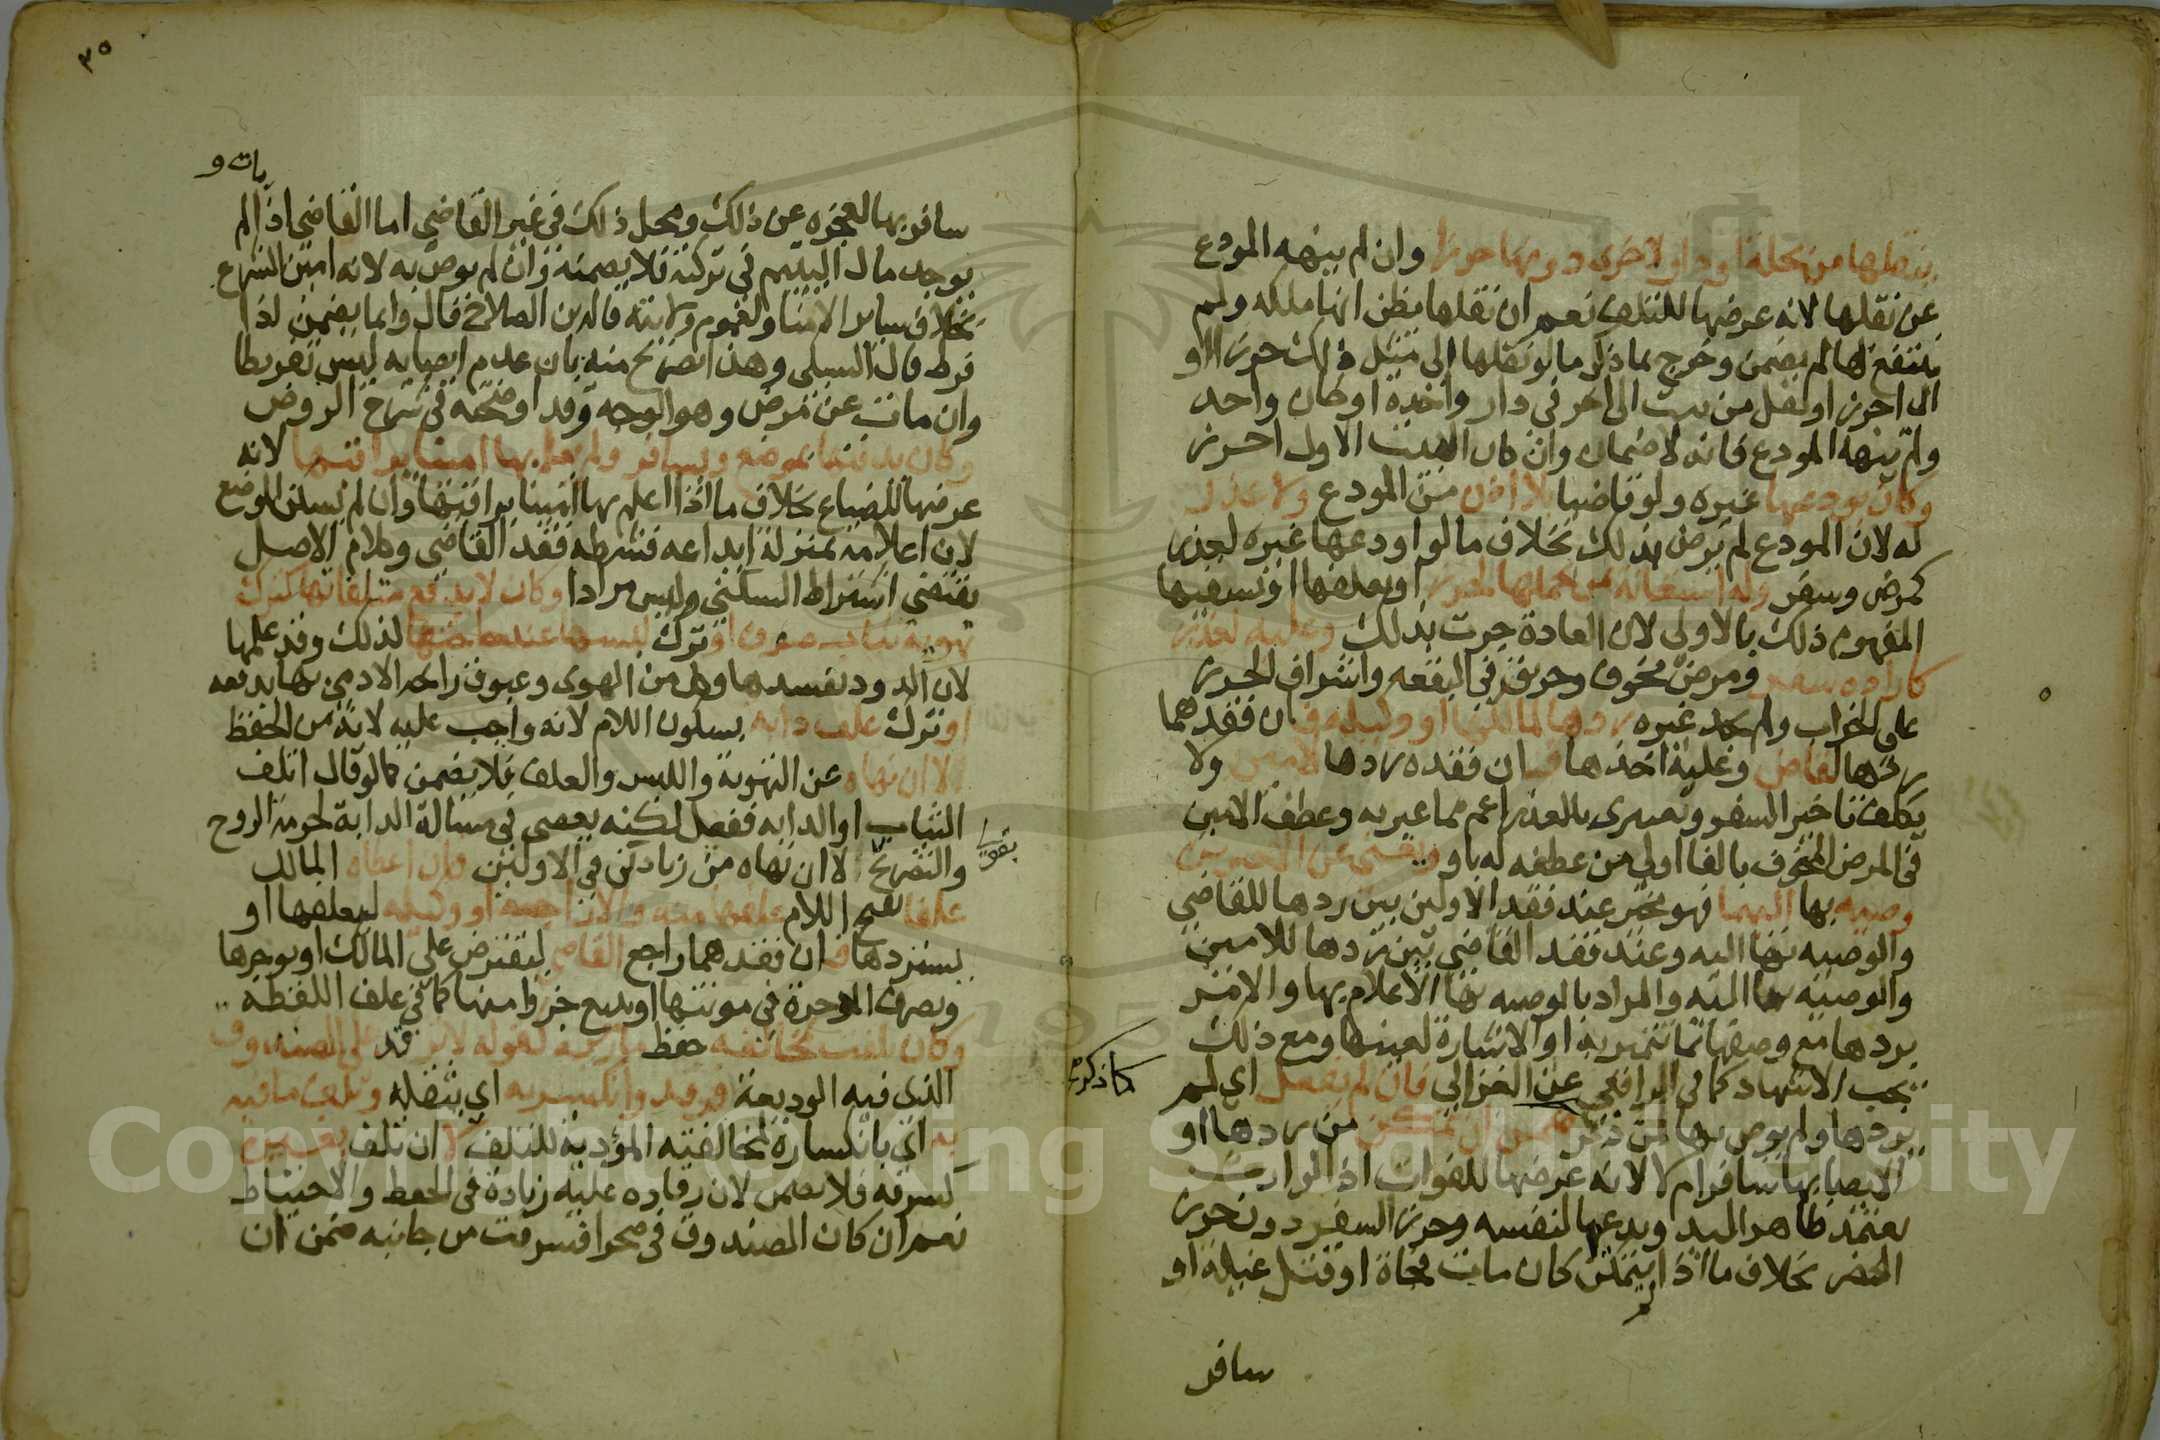 ينقلها من محلة او دار لاخرى دونها حرزا وان لم ينهه المودع
عن نقلها لانه عرضها للتلف نعم ان نقلها بظن انها ملكه ولم
ينتفع بها لم يضمن وخرج بما ذكر ما لو نقلها الى مثل ذلك حرزا او
الى احرز او نقل من بيت الى اخر في دار واحدة او خان واحد
ولم ينهه المودع فانه لا ضمان وان كان البيت الاول احرز
وكان يودعها غيره ولو قاضيا بلا اذن من المودع ولا عذر
له لان المودع لم يرض بذلك بخلاف ما لو اودعها غيره لعذر
كمرض وسفر وله استعانة بمن يحملها لحرز او يعلفها او يسقيها
المفهوم ذلك بالاولى لان العادة جرت بذلك وعليه لعذر
كارادة سفر ومرض مخوف وحريق في البقعة واشراف الحرز
على الخراب ولم يجد غيره ردها لمالكها او وكيله فان فقدهما
ردها لقاض وعليه اخذها فان فقده ردها لامين ولا
يكلف تاخير السفر وتعبيري بالعذر اعم مما عبر به وعطف الامين
في المرض المخوف بالفا اولى من عطفه له باو ويغني عن الاخيرين
وصيه بها اليهما فهو مخير عند فقد الاولين بين ردها للقاضي
والوصيه بها اليه وعند فقد القاضي بين ردها للامين
والوصيه بها اليه والمراد بالوصيه بها الاعلام بها والامر
بردها مع وصفها بما تتميز به او الاشارة لعينها ومع ذلك
يجب الاشهاد كما في الرافعي عن الغزالي فان لم يفعل اي لم
يردها ولم يوص بها لمن ذكر ضمن ان تمكن من ردها او
الايصا بها سافر ام لا لانه عرضها للفوات اذ الوارث
يعتمد ظاهر اليد ويدعيها لنفسه وحرز السفر دون حرز
الحضر بخلاف ما اذا لم يتمكن كان مات فجاة او قتل غيلة او
سافر
كما ذكرته
٣٥
بات و
سافر بها لعجزه عن ذلك ومحل ذلك في غير القاضي اما القاضي اذا لم
يوجد مال اليتيم في تركته فلا يضمنه وان لم يوص به لانه امين الشرع
بخلاف ساير الامنا ولعموم ولايته قاله ابن الصلاح قال وانما يضمن اذا
فرط قال السبكي وهذا تصريح منه بان عدم ايصايه ليس تفريطا
وان مات عن مرض وهو الوجه وقد اوضحته في شرح الروض
وكان يدفنها بموضع ويسافر ولم يعلم بها امينا يراقبها لانه
عرضها للضياع بخلاف ما اذا اعلم بها امينا يراقبها وان لم يسكن الموضع
لان اعلامه بمنزلة ايداعه فشرطه فقد القاضي وكلام الاصل
يقتضي اشتراط السكنى وليس مرادا وكان لا يدفع متلفاتها كترك
تهوية ثياب صوف او ترك لبسها عند حاجتها لذلك وقد علمها
لان الدود يفسدها وكل من الهوى وعبوق رائحة الادمي بها يدفعه
او ترك علف دابه بسكون اللام لانه واجب عليه لانه من الحفظ
لا ان نهاه عن التهوية واللبس والعلف فلا يضمن كما لو قال اتلف
الثياب او الدابه ففعل لكنه يعصي في مسالة الدابة لحرمة الروح
والتصريح بقولي لا ان نهاه من زيادتي في الاوليين فان اعطاه المالك
علفا بفتح اللام علفها منه والا راجعه او وكيله ليعلفها او
يستردها فان فقدهما راجع القاضي ليقترض على المالك او يوجرها
ويصرف الاجرة في مونتها او يبيع جزوا منها كما في علف اللقطة
وكان تلفت بمخالفة حفظ مامور به كقوله لا ترقد على الصندوق
الذي فيه الوديعة فرقد وانكسر به اي بثقله وتلف ما فيه
به اي بانكساره لمخالفته المؤدية للتلف لا ان تلف بغيره
كسرقة فلا يضمن لان رقاده عليه زيادة في الحفظ والاحتياط
نعم ان كان الصندوق في صحرا فسرقت من جانبه ضمن ان
Copyright © King Saud University
1957